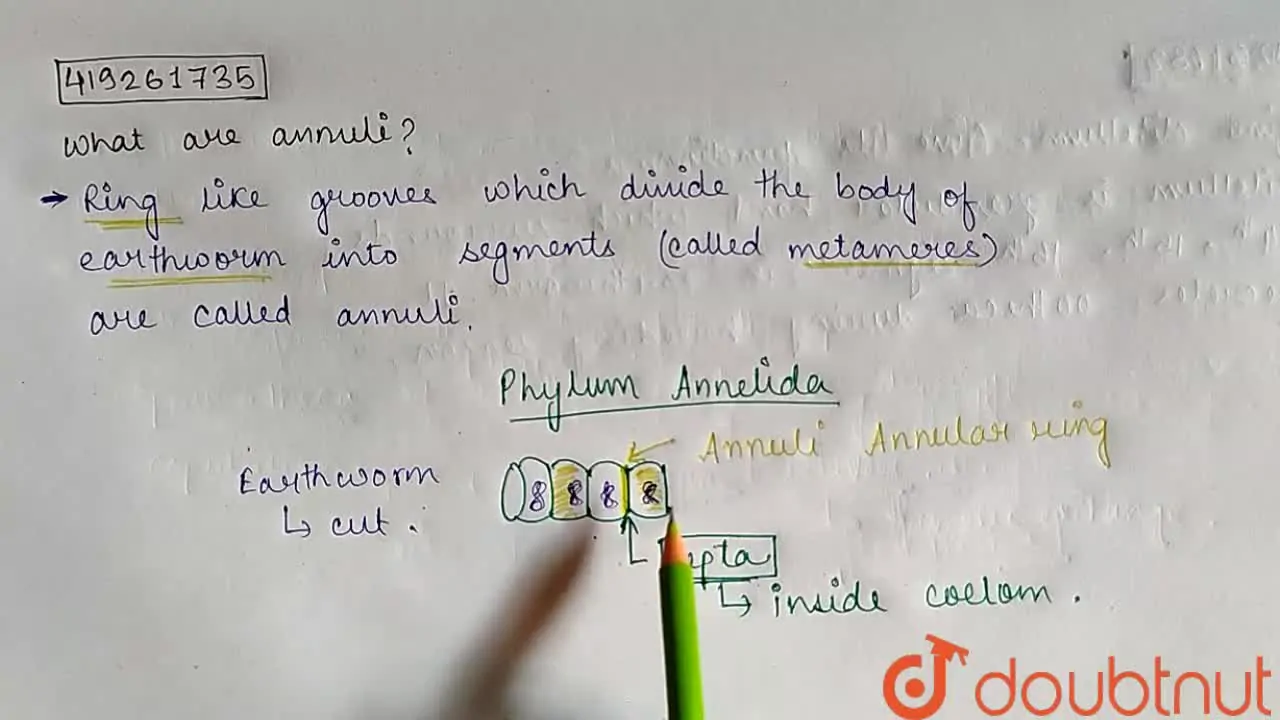 419261735
What are annuli?
→ Ring like grooves which divide the body of
earthworm into segments (called metameres)
are called annuli.
Phylum Annelida
Annuli Annular ring
Earthworm
8 8 8 8
↳ cut.
↳ inside coelom.
doubtnut